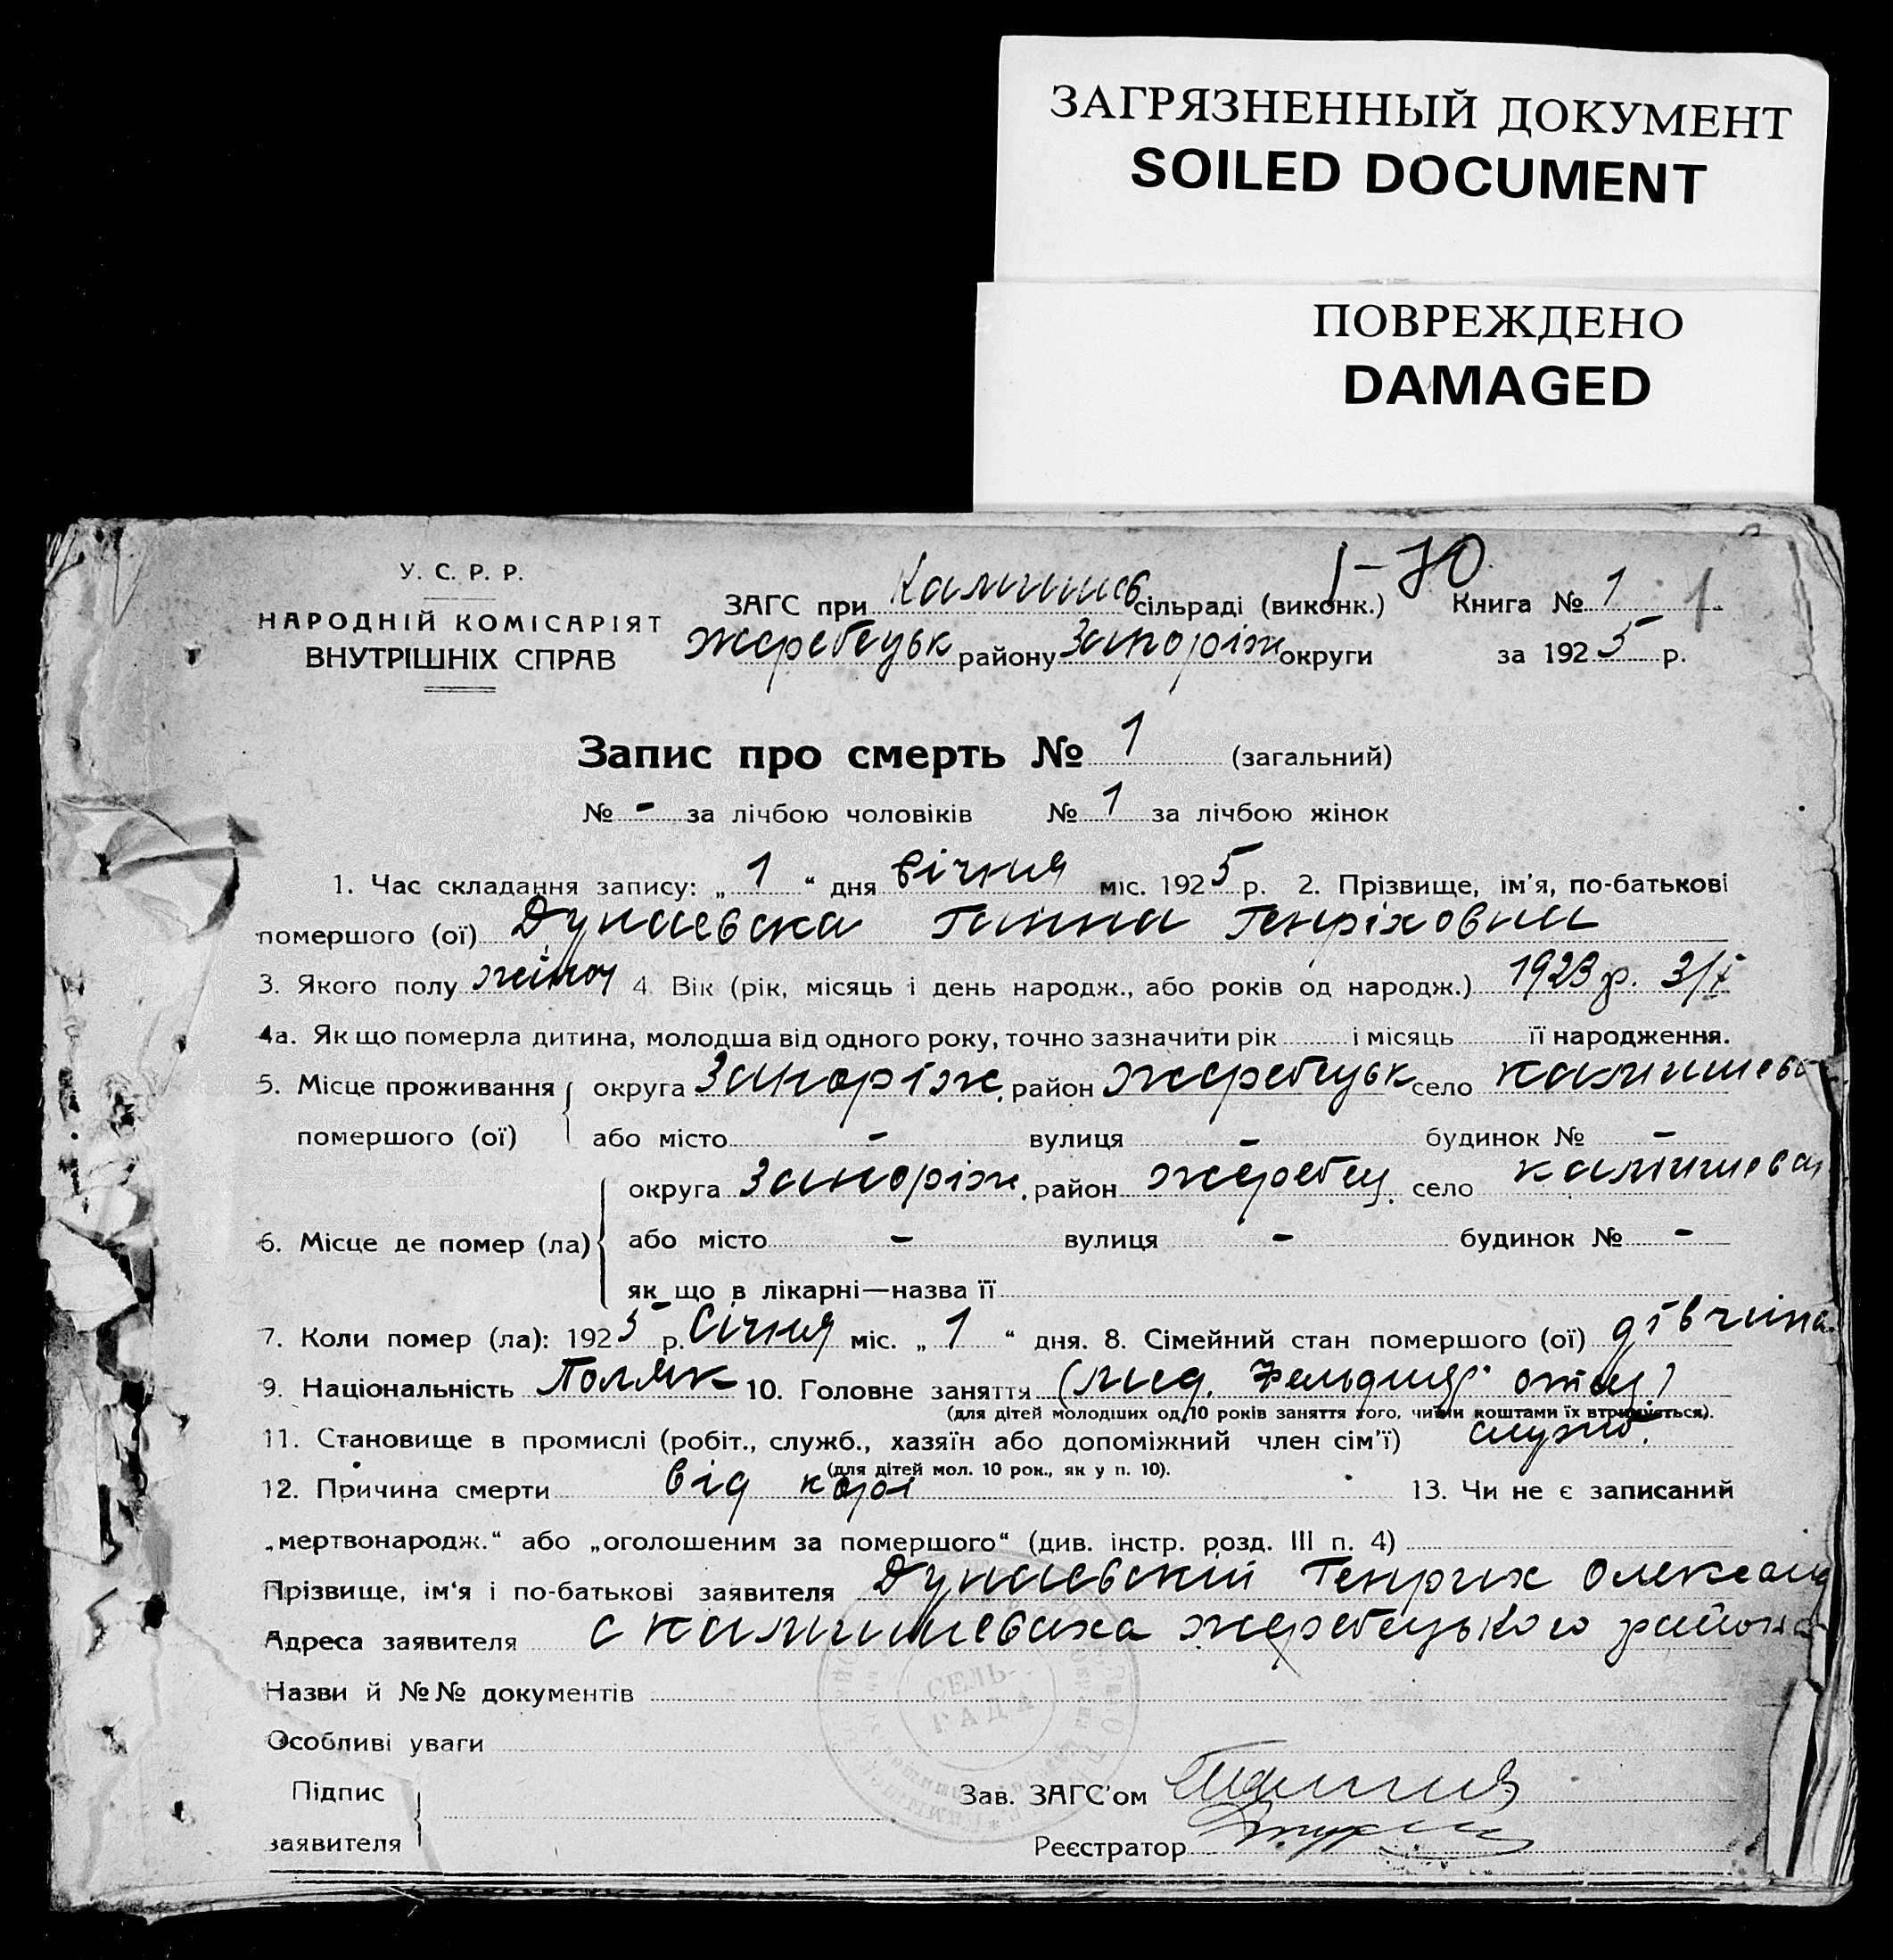 ЗАГРЯЗНЕННЫЙ ДОКУМЕНТ
SOILED DOCUMENT
ПОВРЕЖДЕНО
DAMAGED
У. С. Р. Р.
НАРОДНІЙ КОМІСАРІЯТ
ВНУТРІШНІХ СПРАВ
1-70
ЗАГС при Камишев сільраді (виконк.) Книга № 1 1
Жеребецьк району Запоріж округи за 1925 р.
Запис про смерть № 1 (загальний)
№ - за лічбою чоловіків № 1 за лічбою жінок
1. Час складання запису: „ 1 “ дня Січня міс. 1925 р. 2. Прізвище, ім'я, по-батькові
помершого (ої) Дунаевска Ганна Генріховна
3. Якого полу жіноч 4. Вік (рік, місяць і день народж., або років од народж.) 1923 р. 3/X
4а. Як що померла дитина, молодша від одного року, точно зазначити рік і місяць її народження.
5. Місце проживання округа Запоріж. район Жеребецьк село Камишева
помершого (ої) або місто - вулиця - будинок № -
округа Запоріж. район Жеребец. село Камишевах
6. Місце де помер (ла) або місто - вулиця - будинок № -
як що в лікарні—назва її
7. Коли помер (ла): 1925 р. Січня міс. „ 1 “ дня. 8. Сімейний стан помершого (ої) дівчина
9. Національність Поляк 10. Головне заняття ( Фельдшер отец)
(для дітей молодших од 10 років заняття того, чиїми коштами їх втримується).
11. Становище в промислі (робіт., служб., хазяїн або допоміжний член сім'ї) служб.
(для дітей мол. 10 рок., як у п. 10).
12. Причина смерти від корі 13. Чи не є записаний
„мертвонародж.“ або „оголошеним за помершого“ (див. інстр. розд. III п. 4)
Прізвище, ім'я і по-батькові заявителя Дунаевский Генрих Олександ
Адреса заявителя с Камишеваха жеребецького района
Назви й №№ документів
СЕЛЬ-
РАДА
Особливі уваги
Підпис
заявителя
Зав. ЗАГС'ом
Реєстратор